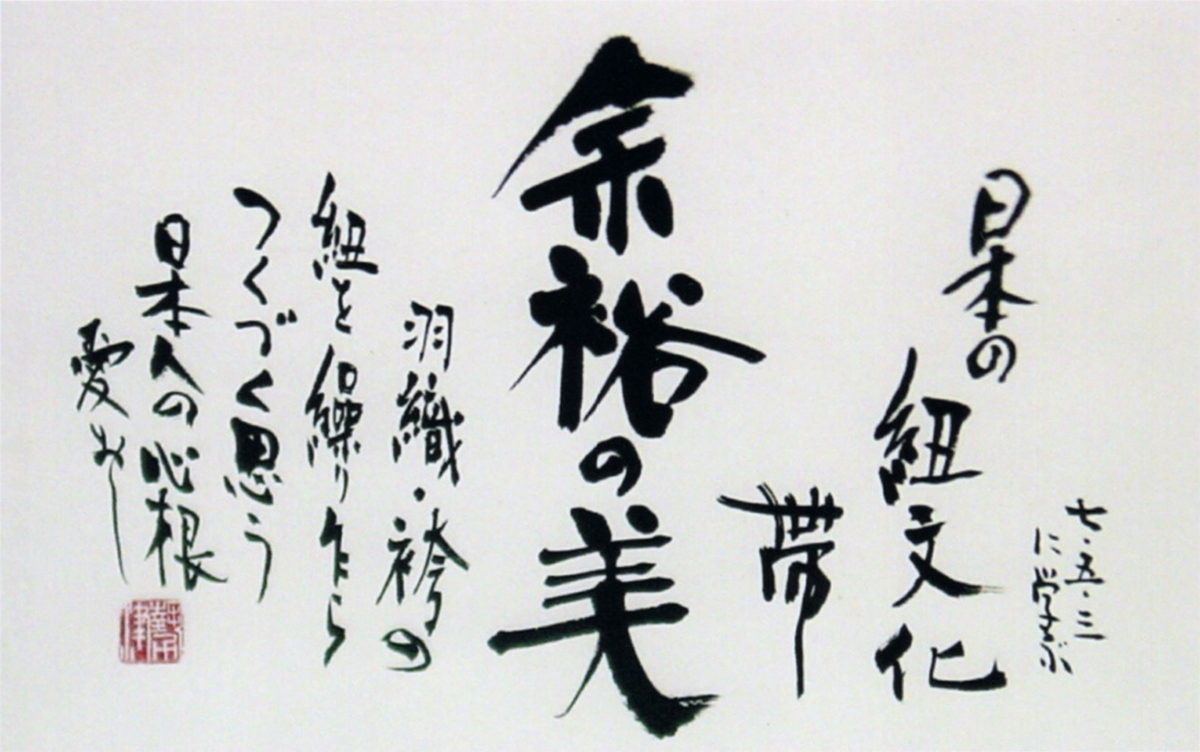 七・五・三
に学ぶ
日本の
紐文化
帯
余裕の美
羽織・袴の
紐を繰り乍ら
つくづく思う
日本人の心根
愛おし